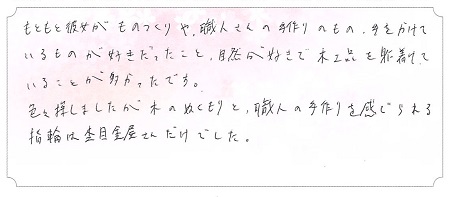 もともと彼女がものつくりや、職人さんの手作りのもの、手をかけて
いるものが好きだったこと、自然が好きで木工品を身着けて
いることが多かったです。
色々探しましたが木のぬくもりと、職人の手作りを感じられる
指輪は杢目金屋さんだけでした。